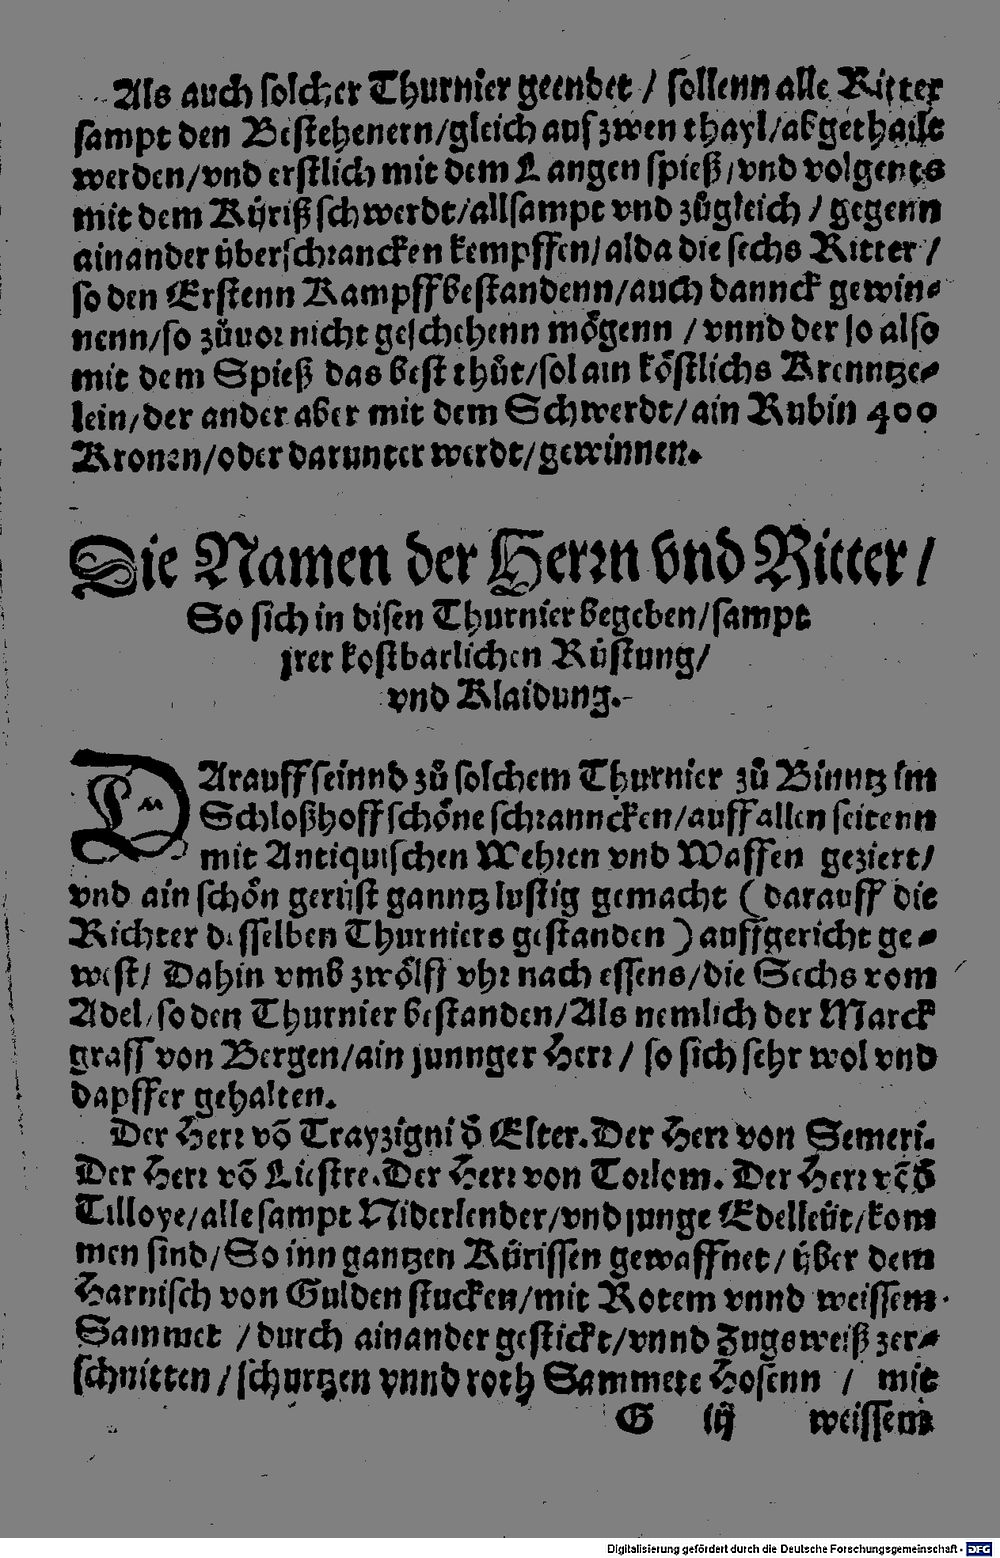 Als auch solcher Thurnier geendet / sollenn alle Ritter
sampt den Bestehenern/gleich auf zwen thayl/abgethailt
werden/vnd erstlich mit dem Langen spieß/vnd volgents
mit dem Kÿriß schwerdt/allsampt vnd zůgleich / gegenn
ainander überschrancken kempffen/alda die sechs Ritter /
so den Erstenn Kampff bestandenn/auch danck gewin-
nenn/so zůuor nicht geschehenn mögenn / vnnd der so also
mit dem Spieß das best thůt/sol ain köstlichs Krenntze-
lein/der ander aber mit dem Schwerdt/ain Rubin 400
Kronen/oder darunter werdt/gewinnen.
Die Namen der Herrn vnd Ritter /
So sich in disen Thurnier begeben/sampt
jrer kostbarlichen Rüstung/
vnd Klaidung.
DArauff seinnd zů solchem Thurnier zů Binntz im
Schloßhoff schöne schranncken/auff allen seitenn
mit Antiquischen Wehren vnd Waffen geziert/
vnd ain schön gerüst ganntz lustig gemacht ( darauff die
Richter desselben Thurniers gestanden ) auffgericht ge-
west/ Dahin vmb zwölff vhr nach essens/die Sechs vom
Adel/so den Thurnier bestanden/Als nemlich der Marck
graff von Bergen/ain junnger Herr / so sich sehr wol vnd
dapffer gehalten.
Der Herr võ Trayzigni d̃ Elter. Der Herr von Semeri.
Der Herr võ Liestre. Der Herr von Torlom. Der Herr võ d̃
Tilloye/alle sampt Niderlender/vnd junge Edelleüt/kom
men sind/So inn gantzen Kürissen gewaffnet/ über dem
Harnisch von Gulden stucken/mit Rotem vnnd weissem
Sammet / durch ainander gestickt/vnnd Zugsweiß zer-
schnitten / schurtzen vnnd roth Sammete Hosenn / mit
G iij weissem
Digitalisierung gefördert durch die Deutsche Forschungsgemeinschaft - DFG